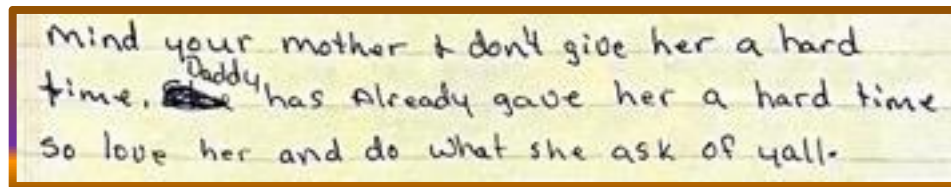 mind your mother & don't give her a hard
time. Daddy has Already gave her a hard time
so love her and do what she ask of yall.